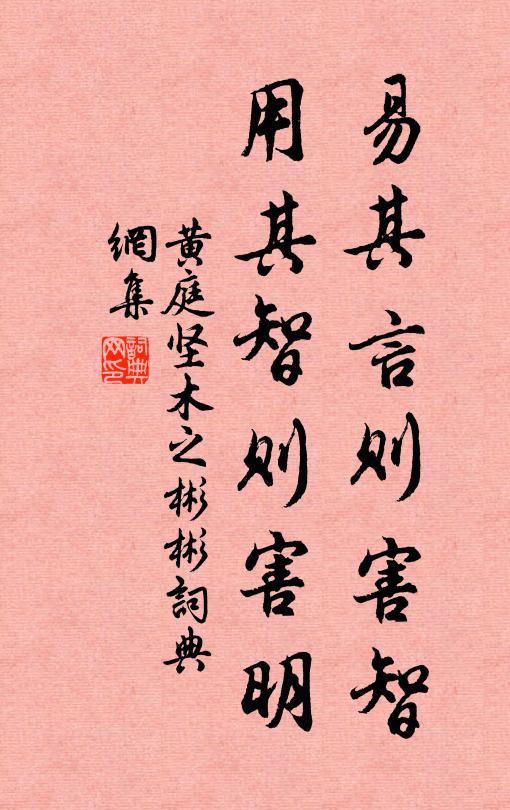 易其言则害智
用其智则害明
黄庭坚木之彬彬詞典
網集
詞典
网印